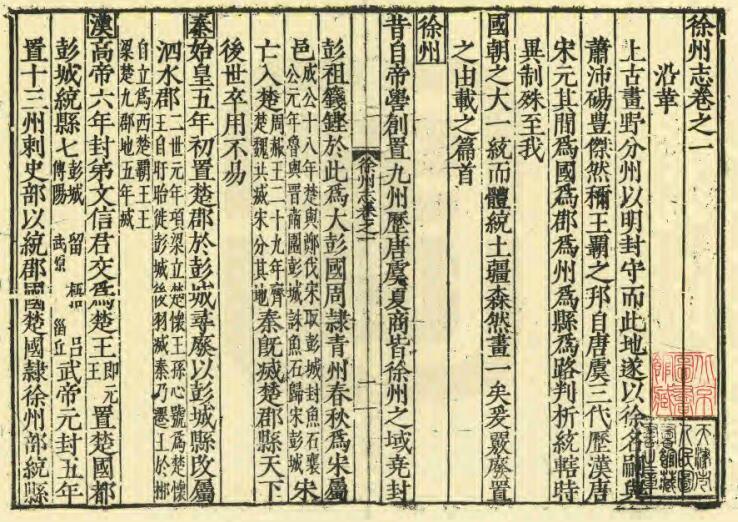 徐州志卷之一
沿革
上古畫野分州以明封守而此地遂以徐名嗣與
蕭沛碭豐傑然稱王霸之邦自唐虞三代歷漢唐
宋元其間爲國爲郡爲州爲縣爲路判析統轄時
異制殊至我
國朝之大一統而體統土疆森然畫一矣爰覈廢置
之由載之篇首
徐州
昔自帝嚳創置九州歷唐虞夏商皆徐州之域堯封
徐州志卷之一
一
彭祖籛鏗於此爲大彭國周隸青州春秋爲宋屬
邑成公十八年楚與鄭伐宋取彭城封魚石襄公元年魯與晋商圍彭城誅魚石歸宋彭城宋
亡入楚周赧王二十九年齊楚魏共滅宋分其地秦旣滅楚郡縣天下
後世卒用不易
秦始皇五年初置楚郡於彭城尋廢以彭城縣改屬
泗水郡二世元年項梁立楚懷王孫心號爲楚懷王自盱眙徙彭城後羽滅秦乃遷王於郴
自立爲西楚霸王王梁楚九郡地五年滅
漢高帝六年封弟文信君交爲楚王即元王置楚國都
彭城統縣七彭城 留 梧 吕傅陽 武原 甾丘武帝元封五年
置十三州刺史部以統郡國楚國隸徐州部統縣